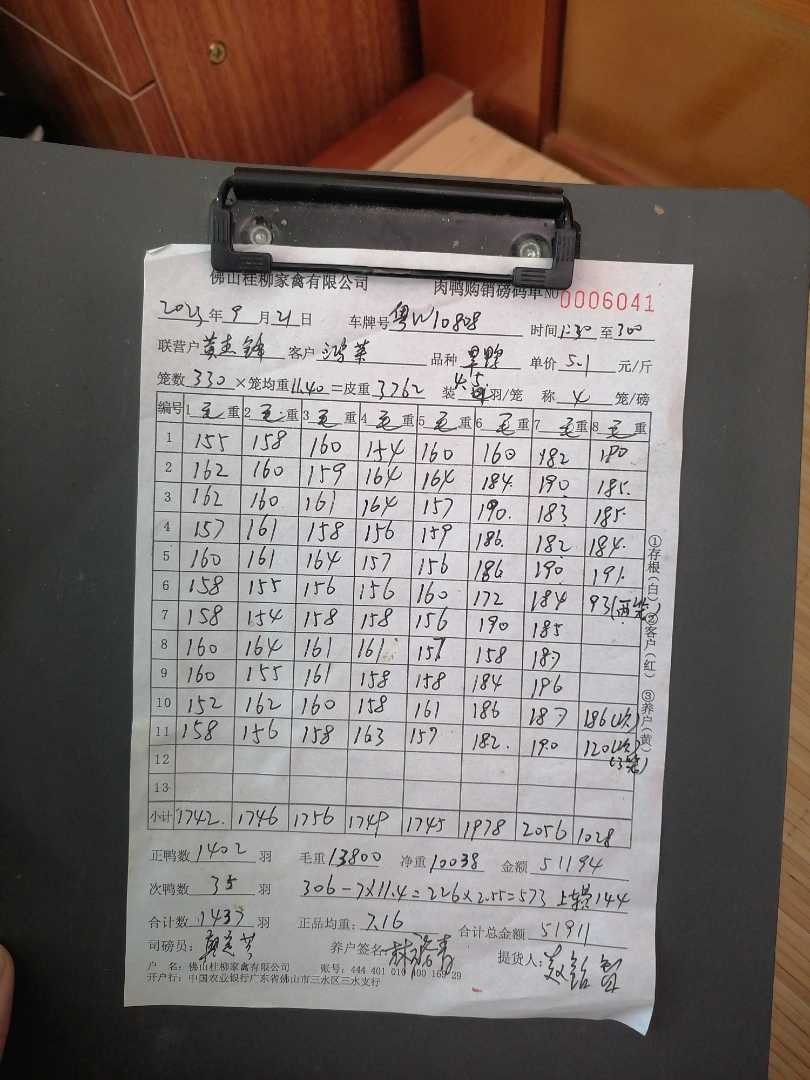 佛山桂柳家禽有限公司 肉鸭购销磅码单NO 0006041
2023年 9 月 21 日 车牌号 粤W10808 时间 1:30 至 300
联营户 黄志锋 客户 鸿英 品种 单价 5.1 元/斤
笼数 330 ×笼均重 11.40 =皮重 3762 装 4.5 羽/笼 称 4 笼/磅
编号 1 毛重 2 毛重 3 毛重 4 毛重 5 毛重 6 毛重 7 毛重 8 毛重
1 155 158 160 154 160 160 182 180
2 162 160 159 164 164 184. 190. 185.
3 162 160 161 164 157 190. 183 185.
4 157 161 158 156 159 186. 182 184.
5 160 161 164 157 156 186 190. 191.
6 158 155 156 156 160 172 184 93(两笼)
7 158 154 158 158 156 190 185
8 160 164 161 161 157 158 187
9 160 155 161 158 158 184 196
10 152 162 160 158 161 186 187 186(次)
11 158 156 158 163 157 182. 190 120(次)
12 (3笼)
13
小计 1742. 1746 1756 1749 1745 1978 2056 1028
正鸭数 1402 羽 毛重 13800 净重 10038 金额 51194
次鸭数 35 羽 306-7×11.4=226×2.55=573 上车费144
合计数 1437 羽 正品均重: 7.16 合计总金额 51911
司磅员: 养户签名: 提货人:
户 名: 佛山桂柳家禽有限公司 账号: 444 401 010 400 169 29
开户行: 中国农业银行广东省佛山市三水区三水支行
①存根(白) ②客户(红) ③养户(黄)